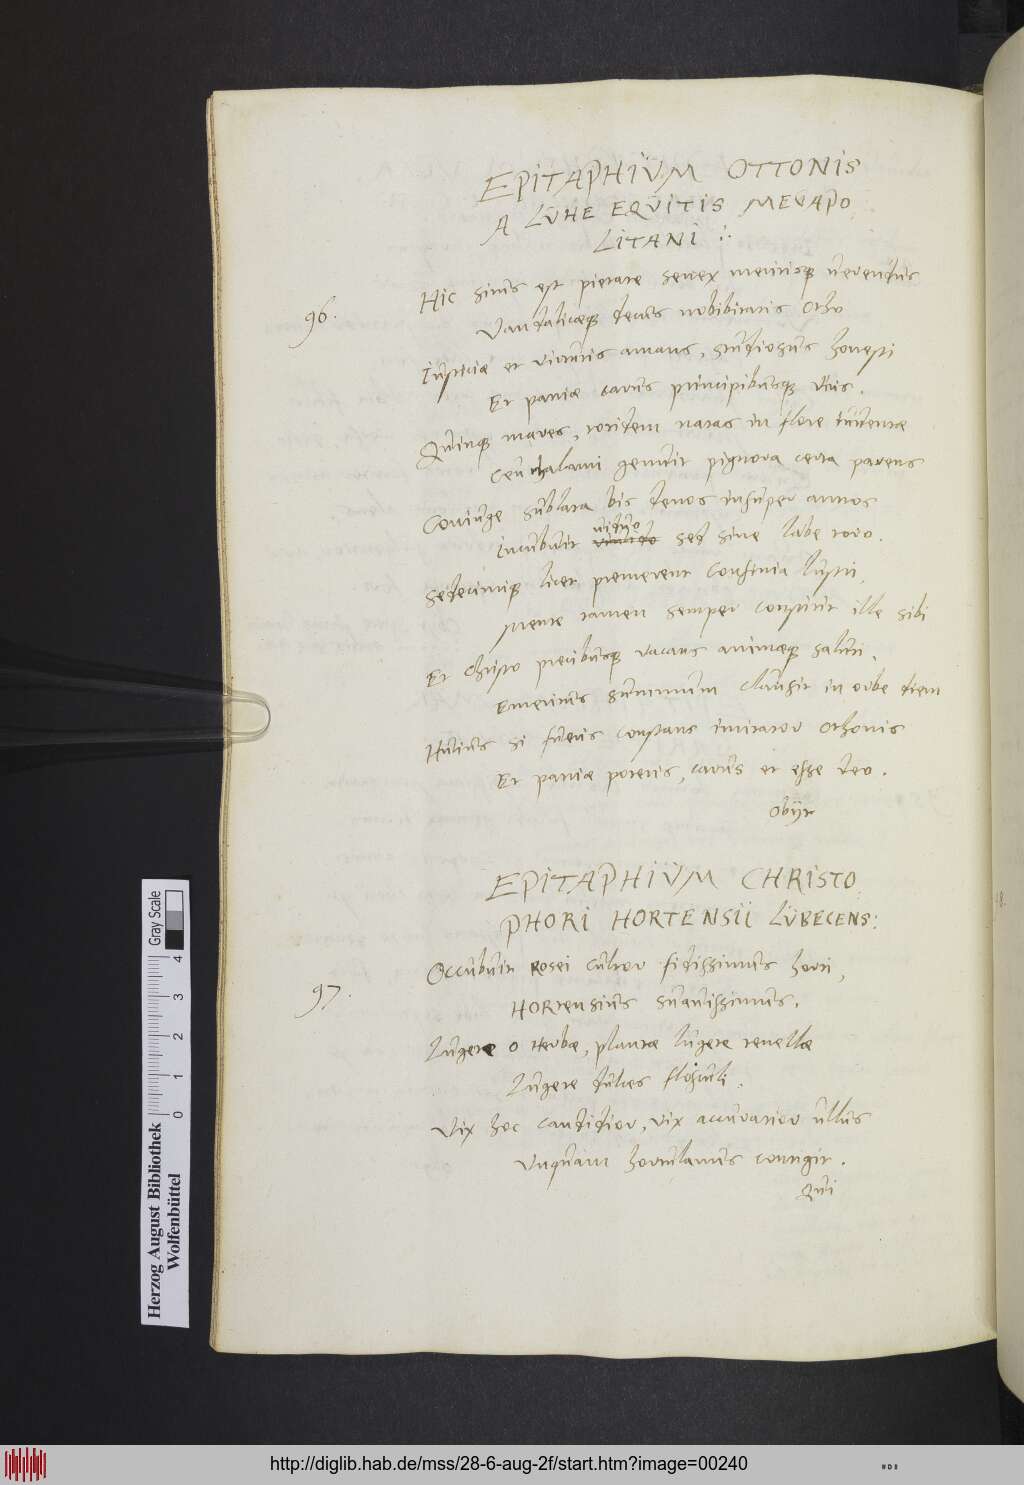 EPITAPHIUM OTTONIS
A LUHE EQUITIS MEGAPO
LITANI
96.
Hic situs est pietate senex meritisque verendus
Vandalicaeque decus nobilitatis Otho
Iustitiae et virtutis amans, studiosus honesti
Et patriae carus principibusque viris.
Quinque mares, totidem natas in flore iuventae
Ceu thalami genuit pignora certa parens
Coniuge sublata bis denos insuper annos
viduo
Incubuit sed sine labe toro.
Sedecimique licet premerent confinia lustri,
Mente tamen semper constitit ille sibi
Et Christo precibusque vacans animaeque saluti,
Emeritus summum clausit in orbe diem
Huius si fueris constans imitator Othonis
Et patriae poteris, carus et esse deo.
Obijt
EPITAPHIUM CHRISTO
PHORI HORTENSII LUBECENS:
97.
Occubuit rosei cultor fidissimus horti,
HORTensius suavissimus.
Lugete o Herbae, plantae lugete tenellae
Lugete dulces flosculi.
Vix hoc candidior, vix accuratior ullus
Unquam hortulanus contigit.
Qui
Herzog August Bibliothek
Wolfenbüttel
Gray Scale
0 1 2 3 4
http://diglib.hab.de/mss/28-6-aug-2f/start.htm?image=00240